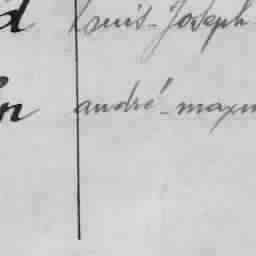 d Louis-Joseph
n andré-maxim